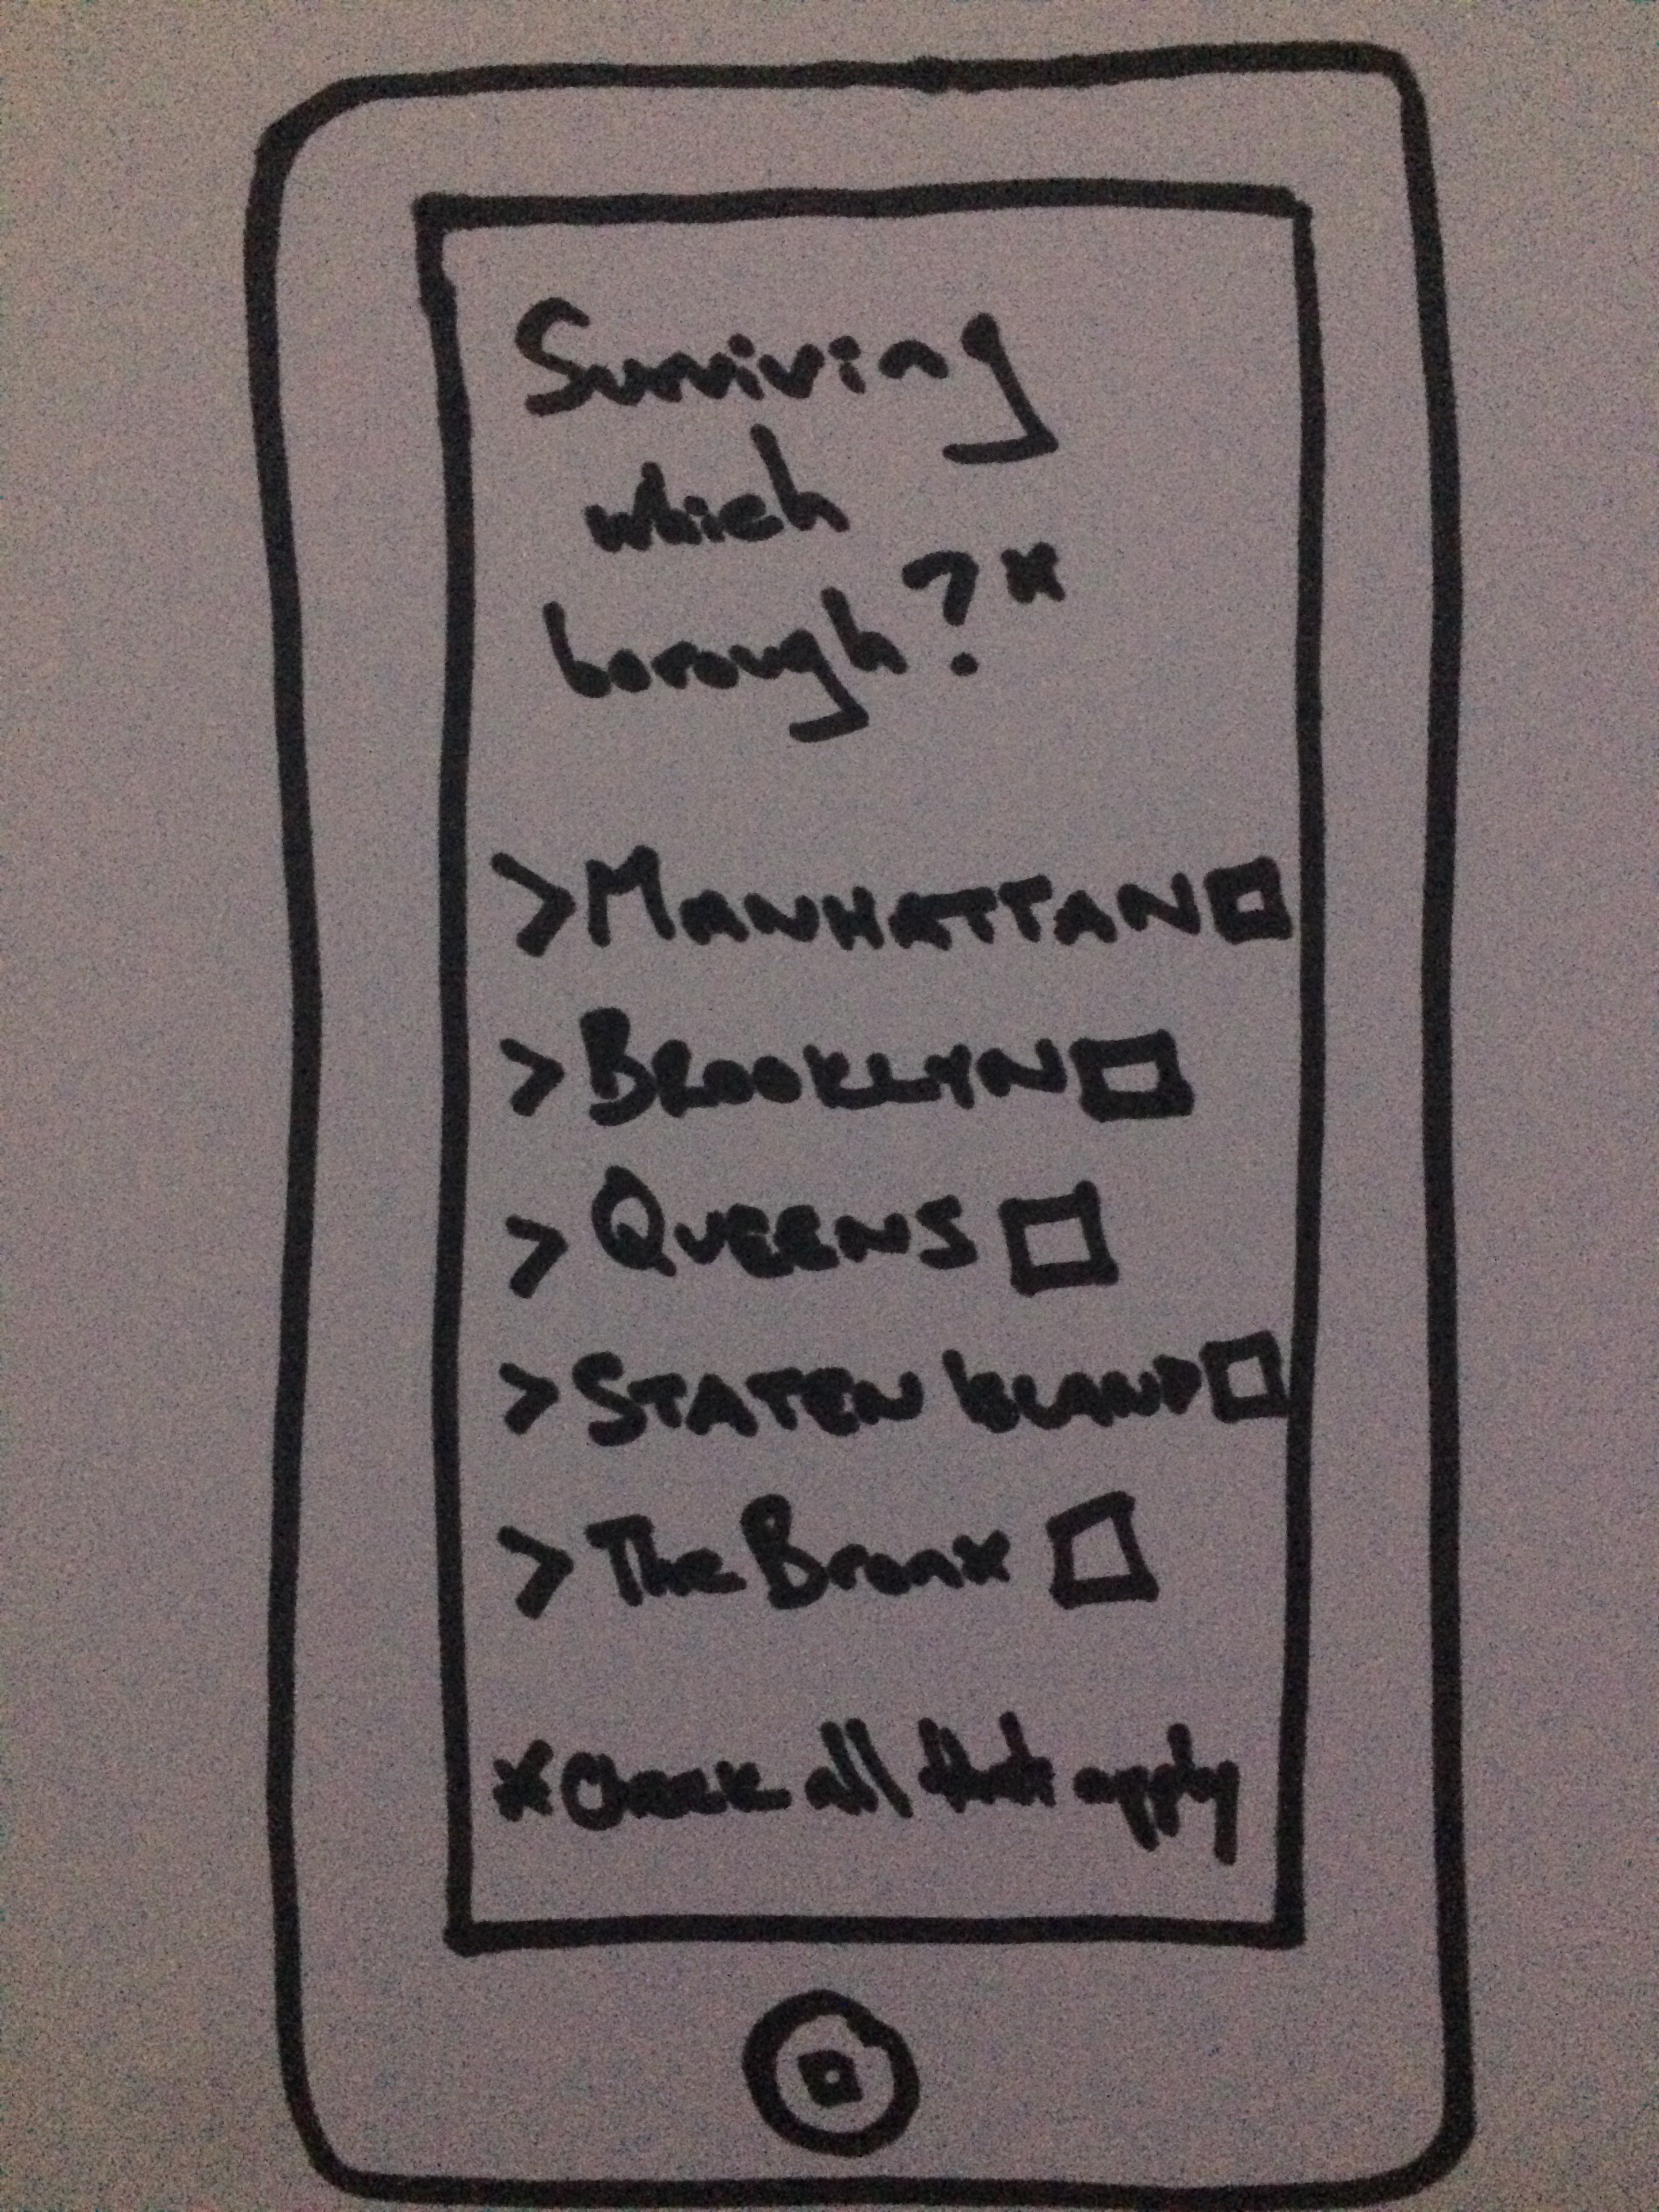 Surviving
which
borough?*
> MANHATTAN
> BROOKLYN
> QUEENS
> STATEN ISLAND
> The Bronx
*Check all that apply